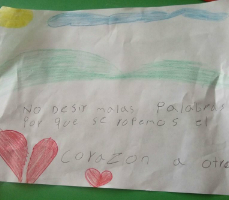 No Desir malas Palabras
Por que se romemos el
corazon a otre